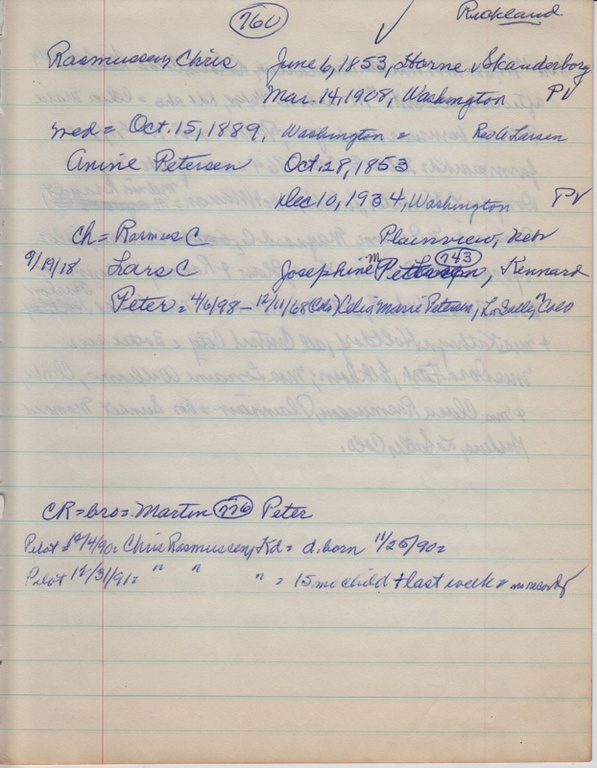 760 Richland
Rasmussen, Chris June 6, 1853, Horne, Skanderborg
Mar. 14, 1908, Washington PV
med = Oct. 15, 1889, Washington = Rev A Larsen
Anine Petersen Oct. 28, 1853
Dec 10, 1934, Washington PV
Ch = Rasmus C Plainview, Neb
9/19/18 Lars C Josephine M 743 Kennard
Peter = 4/6/98 - 12/11/68 (Colo) Marie Petersen, LaSalle, Colo
CR = bro = Martin 776 Peter
Pilot 12/4/90 = Chris Rasmussen, Kd = d. born 11/25/90 =
Pilot 12/31/91 = " " " = 15 mo child + last week = no record